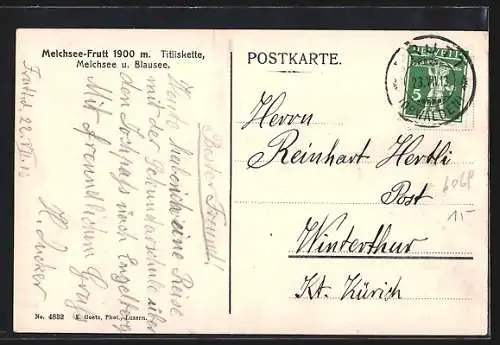 Melchsee-Frutt 1900 m. Titliskette,
Melchsee u. Blausee.
POSTKARTE.
HELVETIA
5
Bester Freund!
Heute habe ich eine Reise
mit der Sekundarschule über
den Jochpass nach Engelberg
Mit freundlichem Gruss
H. Zucker
Frutt d. 22. VII. 13
Herrn
Reinhart Hertli
Post
Winterthur
Kt. Zürich
15
No. 4832 E. Goetz, Phot., Luzern.